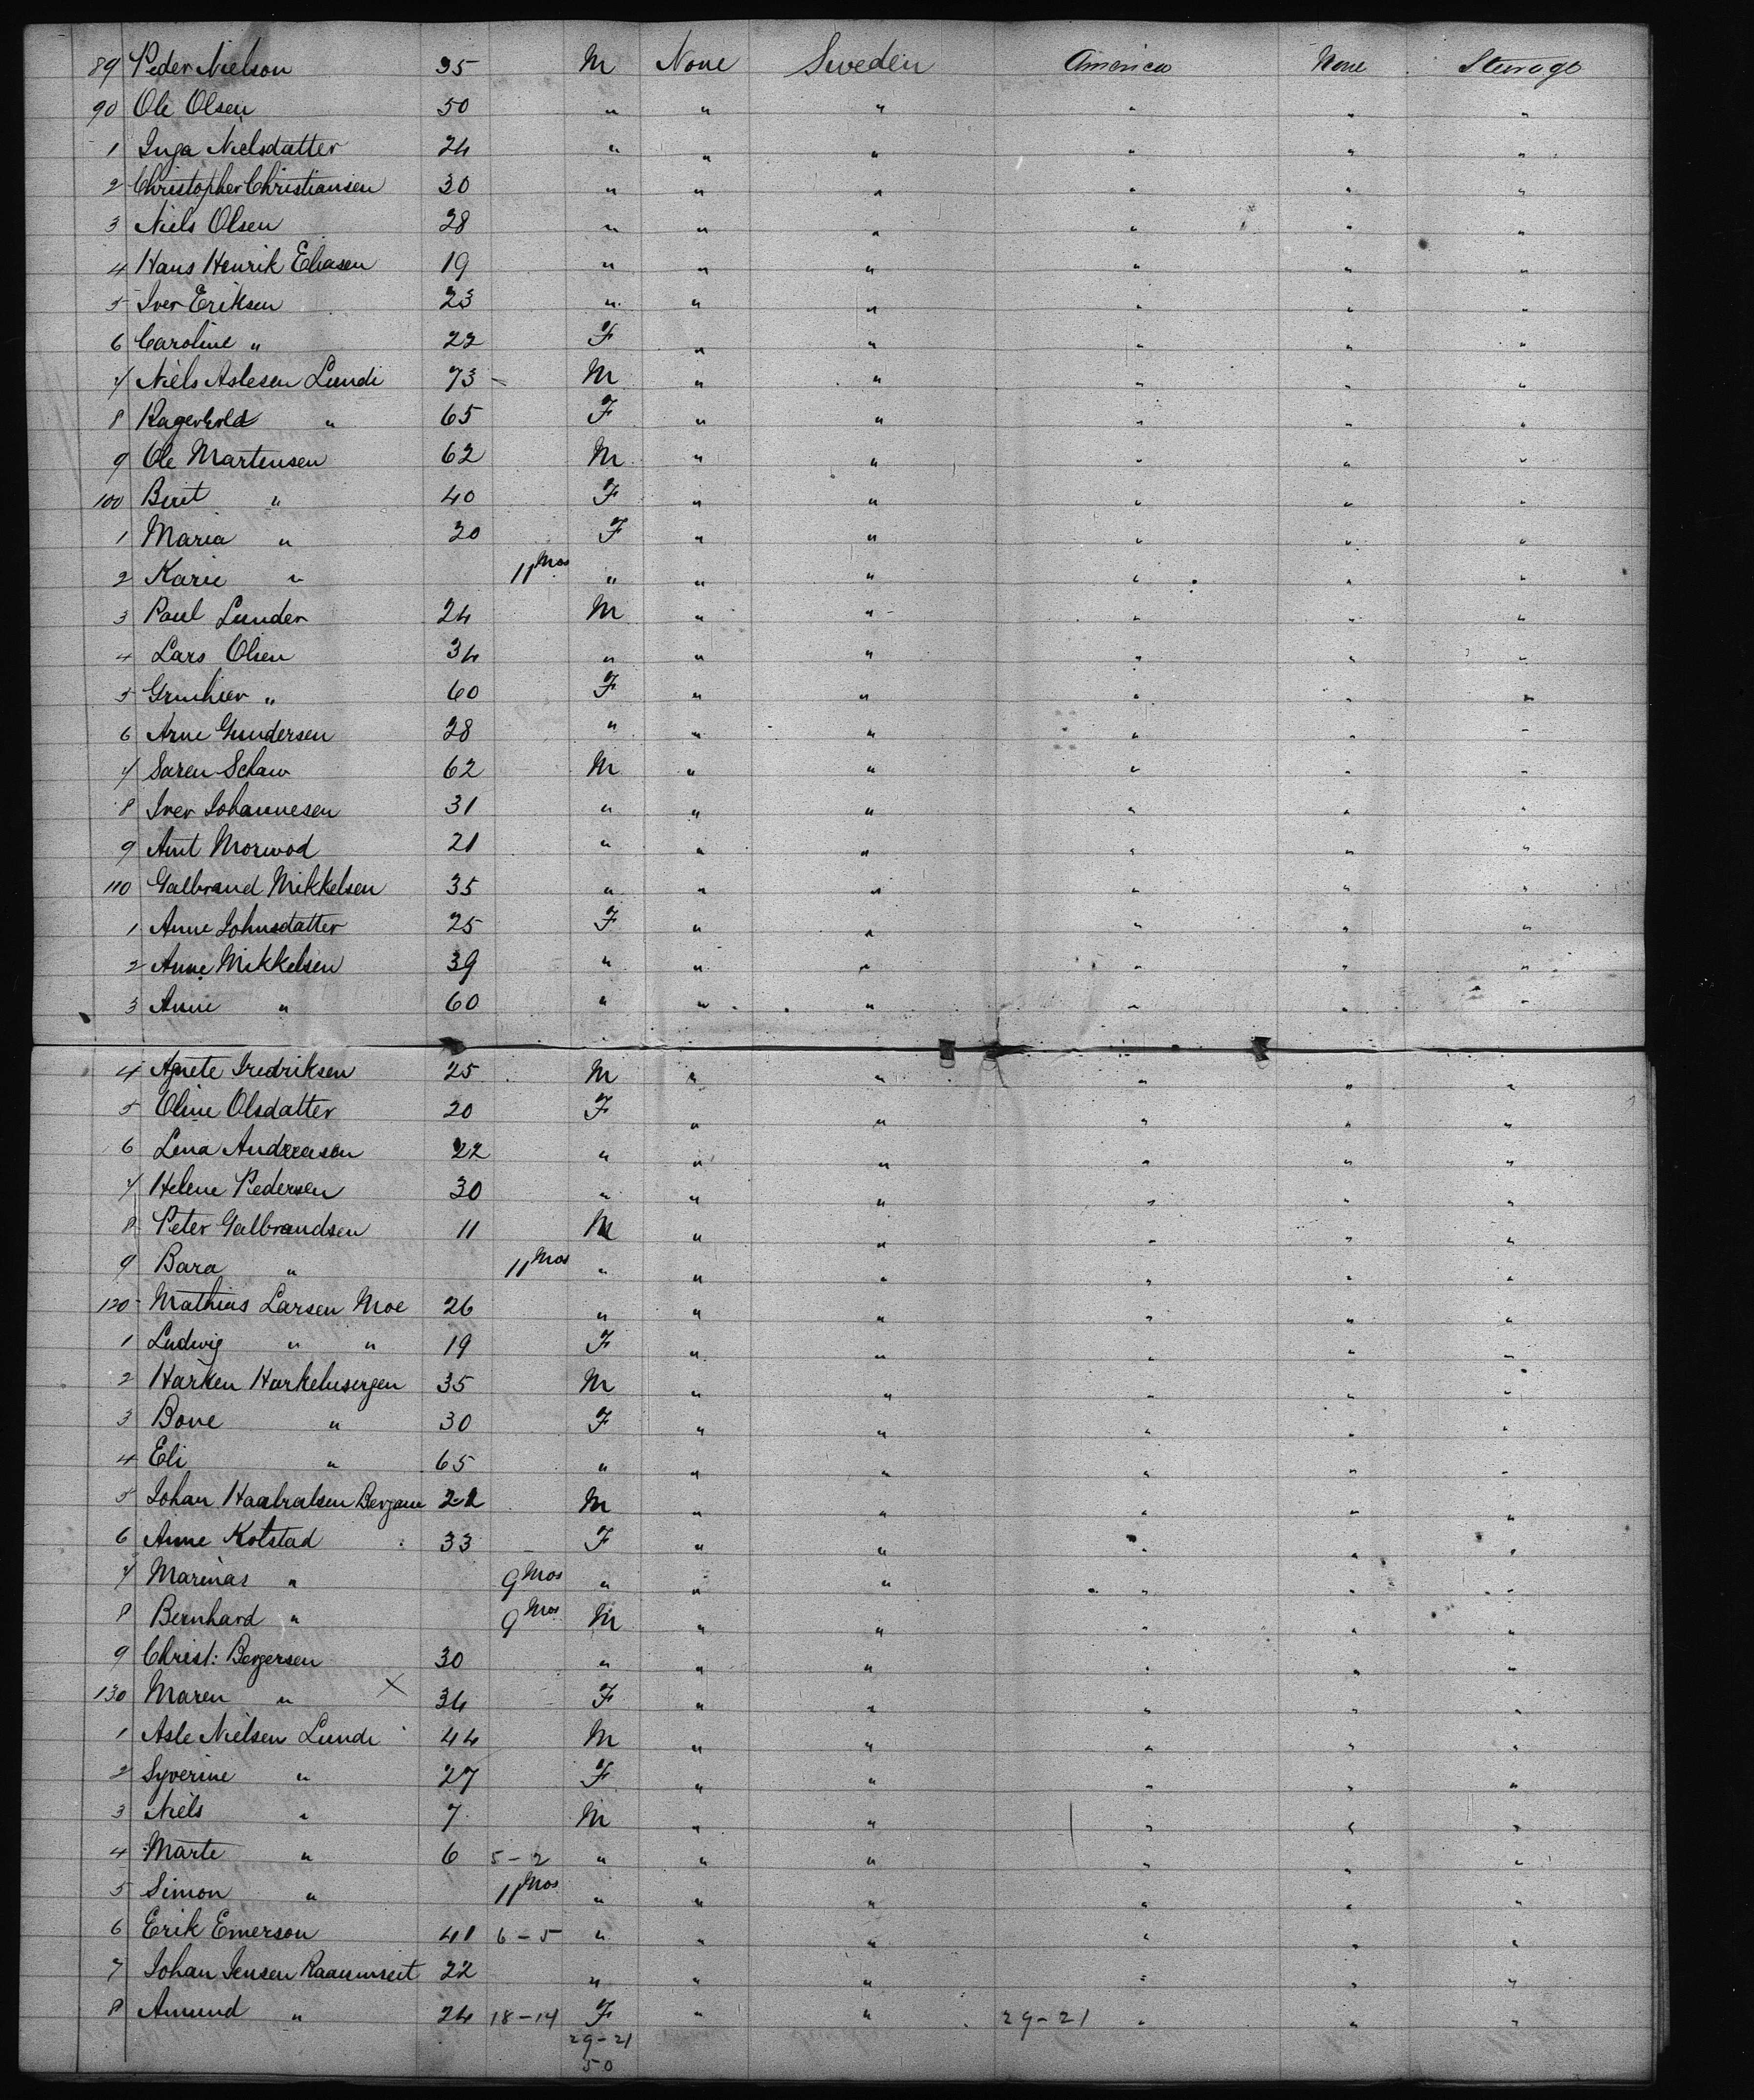 89 Peder Nielson 35 M None Sweden America None Steerage
90 Ole Olsen 50 " " " " " "
1 Inga Nielsdatter 24 " " " " " "
2 Christopher Christiansen 30 " " " " " "
3 Niels Olsen 28 " " " " " "
4 Hans Henrik Eliasen 19 " " " " " "
5 Iver Eriksen 23 " " " " " "
6 Caroline " 22 F " " " " "
7 Niels Aslesen Lundi 73 M " " " " "
8 " 65 F " " " " "
9 Ole Martensen 62 M " " " " "
100 Berit " 40 F " " " " "
1 Maria " 20 F " " " " "
2 Karie " 11 Mos " " " " " "
3 Paul Lunder 24 M " " " " "
4 Lars Olsen 34 " " " " " "
5 " 60 F " " " " "
6 Arne Gundersen 28 " " " " " "
7 Saren Schaw 62 M " " " " "
8 Iver Johannesen 31 " " " " " "
9 Amt Morwod 21 " " " " " "
110 Galbrand Mikkelsen 35 " " " " " "
1 Anne Johnsdatter 25 F " " " " "
2 Anne Mikkelsen 39 " " " " " "
3 Anne " 60 " " " " " "
4 Agnete Fredriksen 25 M " " " " "
5 Oline Olsdatter 20 F " " " " "
6 Lina Andreasen 22 " " " " " "
7 Helene Pedersen 30 " " " " " "
8 Peter Galbrandsen 11 M " " " " "
9 Bara " 11 Mos " " " " " "
120 Mathias Larsen Moe 26 " " " " " "
1 Ludwig " " 19 F " " " " "
2 Harken Harkelusergen 35 M " " " " "
3 Bone " 30 F " " " " "
4 Eli " 65 " " " " " "
5 Johan 22 M " " " " "
6 Anne Kolstad 33 F " " " " "
7 Marinas " 9 Mos " " " " " "
8 Bernhard " 9 Mos M " " " " "
9 Christ: Bergersen 30 " " " " " "
130 Maren " X 34 F " " " " "
1 Asle Nielsen Lundi 44 M " " " " "
2 Syverine " 27 F " " " " "
3 Niels " 7 M " " " " "
4 Marte " 6 5-2 " " " " " "
5 Simon " 11 Mos " " " " " "
6 Erik Emerson 41 6-5 " " " " " "
7 Johan Jensen 22 " " " " " "
8 Amund " 24 18-14 F " " 29-21 " " "
29-21
50